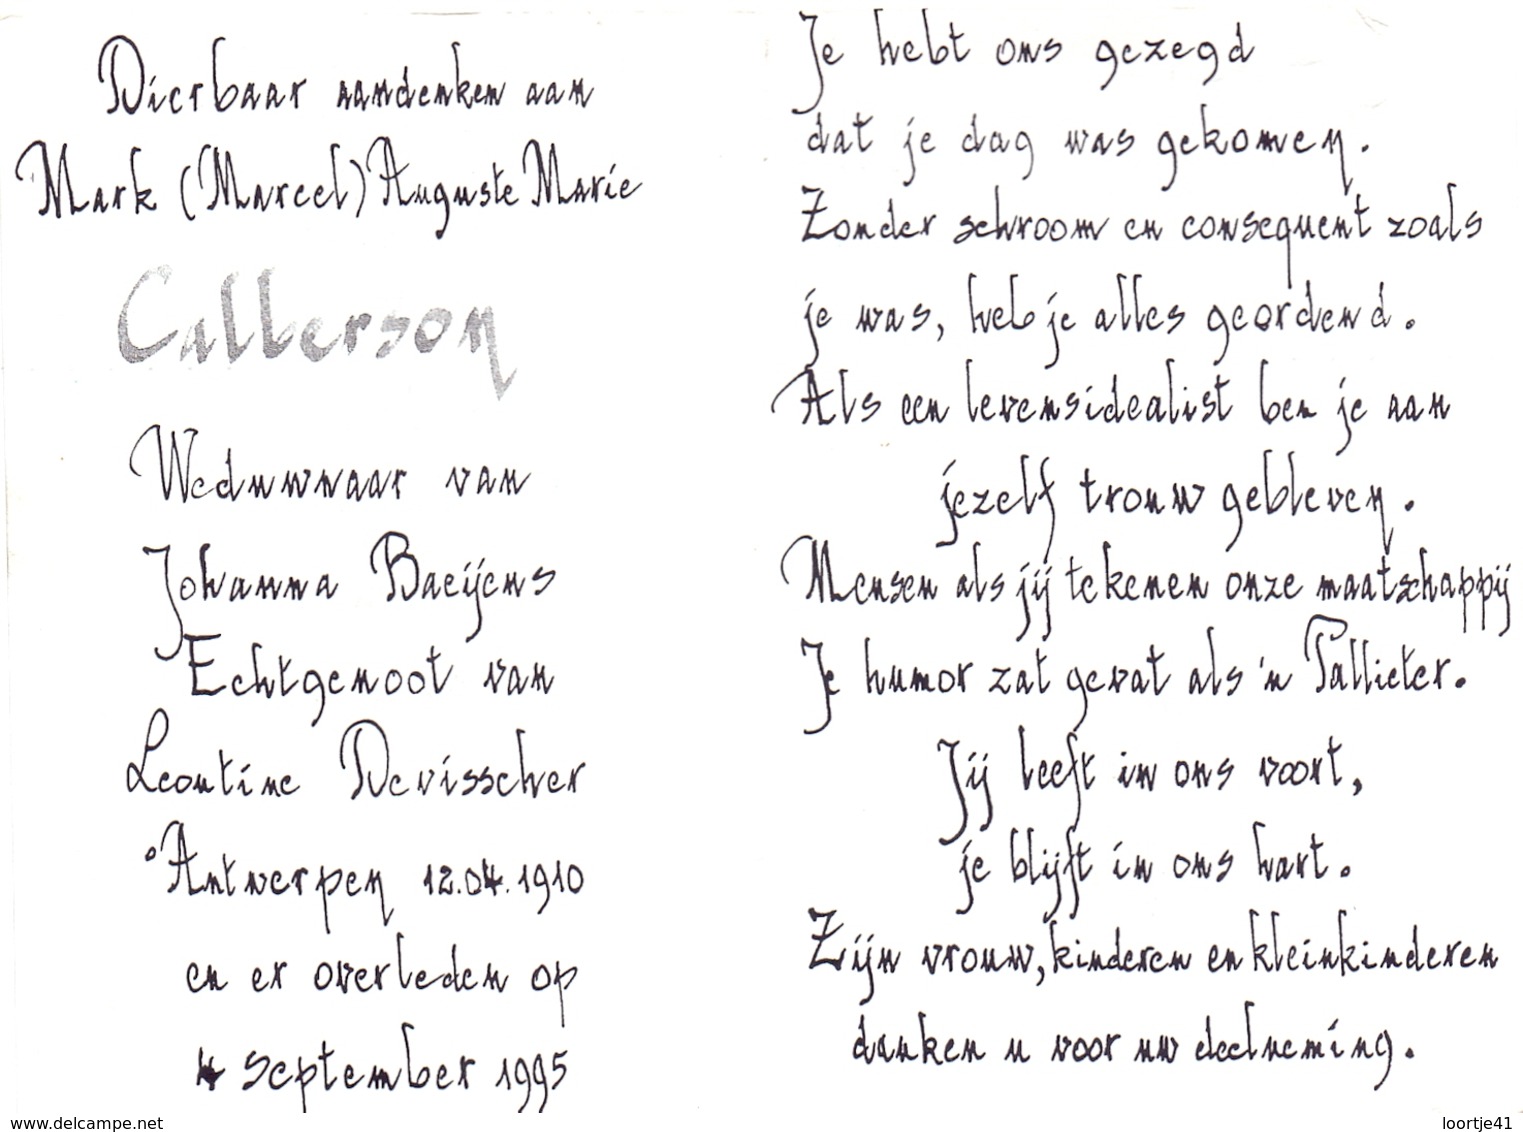 Dierbaar aandenken aan
Mark (Marcel) Auguste Marie
Calberson
Weduwnaar van
Johanna Baeijens
Echtgenoot van
Leontine Devisscher
°Antwerpen 12.04.1910
en er overleden op
4 september 1995
Je hebt ons gezegd
dat je dag was gekomen.
Zonder schroom en consequent zoals
je was, heb je alles geordend.
Als een levensidealist ben je aan
jezelf trouw gebleven.
Mensen als jij tekenen onze maatschappij
Je humor zat gevat als 'n Pallieter.
Jij leeft in ons voort,
je blijft in ons hart.
Zijn vrouw, kinderen en kleinkinderen
danken u voor uw deelneming.
www.delcampe.net
loortje41